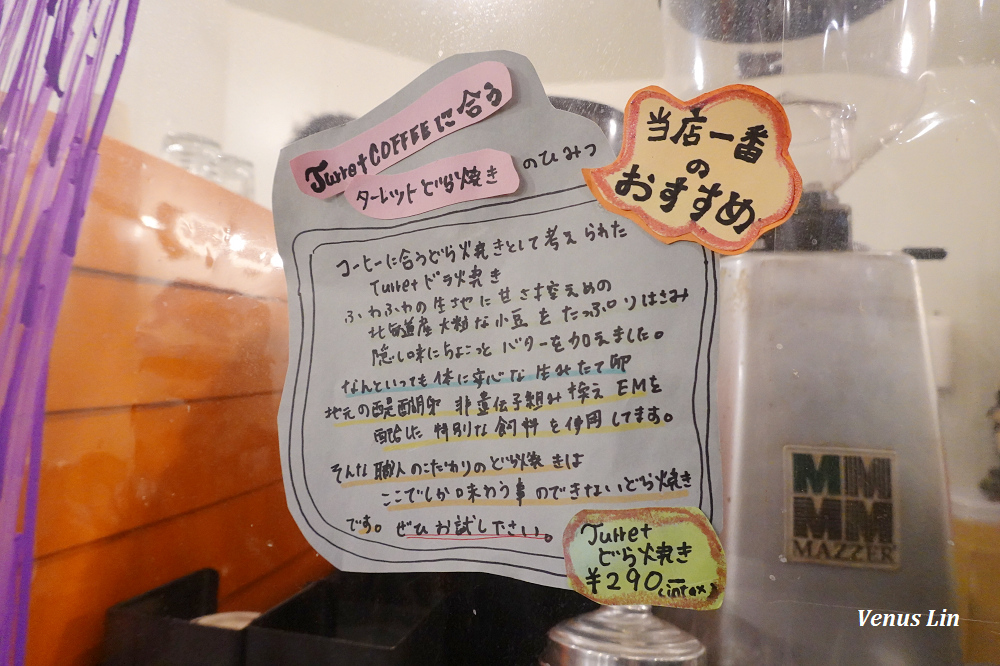 Turret COFFEEに合う
ターレットどら焼き
のひみつ
当店一番
の
おすすめ
コーヒーに合うどら焼きとして考えられた
Turretドラ焼き
ふわふわの生地に甘さ控えめの
北海道産大粒な小豆をたっぷりはさみ
隠し味にちょこっとバターを加えました。
なんといっても体に安心な生みたて卵
地元の醍醐卵 非遺伝子組み換え EMを
配合した 特別な飼料を使用してます。
そんな職人のこだわりのどら焼きは
ここでしか味わう事のできないどら焼き
です。ぜひお試しください。
Turret
どら焼き
¥290
(intax)
MAZZER
Venus Lin